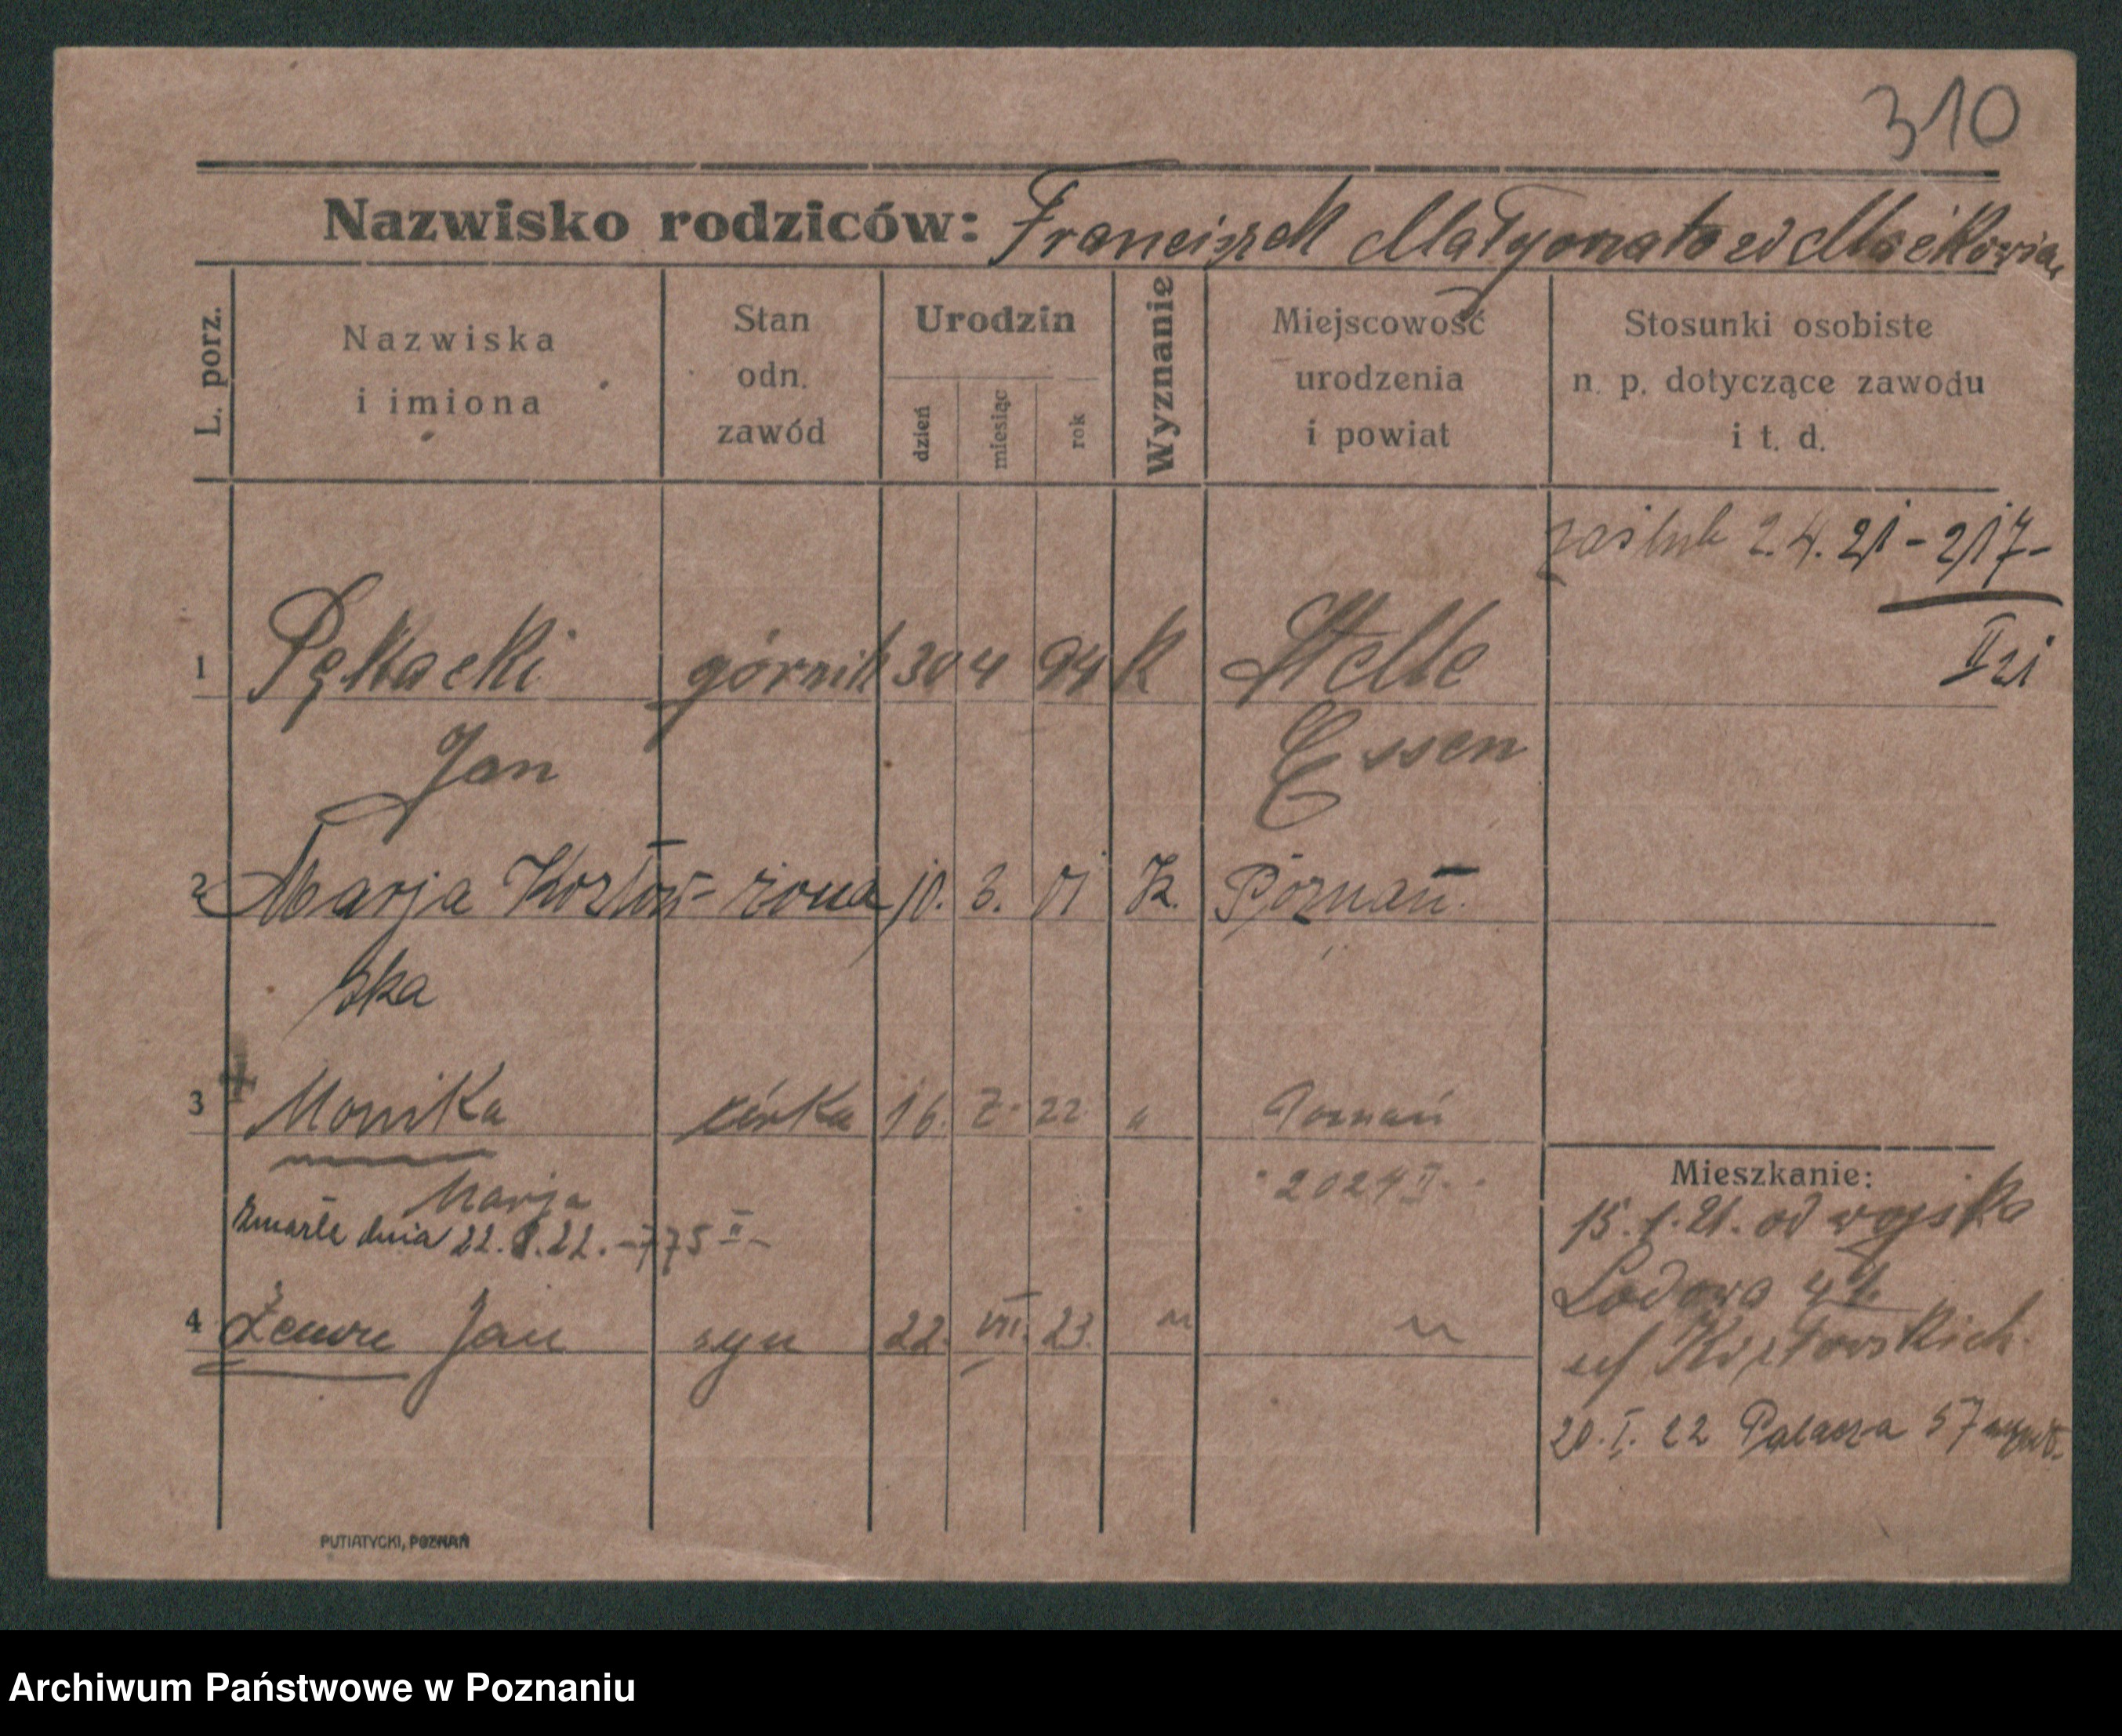 310
Nazwisko rodziców: Franciszek
L. porz.
Nazwiska
i imiona
Stan
odn.
zawód
Urodzin
dzień
miesiąc
rok
Wyznanie
Miejscowość
urodzenia
i powiat
Stosunki osobiste
n. p. dotyczące zawodu
i t. d.
zaślub 2.4.21 - 217-
II 21
1 Pękacki górnik 30 4 94 K Stelle
Jan Essen
2 Marja żona 10. 3. 01 K. Poznań
ska
3 Monika córka 16. 7. 22 " Poznań
Marja 2024 II
zmarła dnia 22. 22. - 775 II -
4 Zenon Jan syn 22. VII. 23. " "
Mieszkanie:
15. 1. 21. od wojska
Lodowa
20. I. 22 Palacza 57
PUTIATYCKI, POZNAŃ
Archiwum Państwowe w Poznaniu